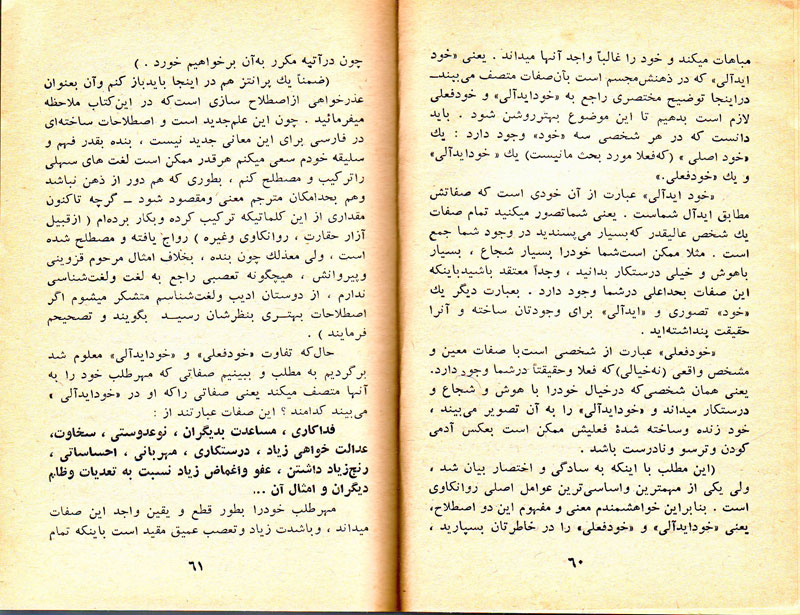 مباهات میکند و خود را غالباً واجد آنها میداند . یعنی «خود
ایدآلی» که در ذهنش‌مجسم است بآن‌صفات متصف می‌بیند ــ
دراینجا توضیح مختصری راجع به «خودایدآلی» و خودفعلی
لازم است بدهیم تا این موضوع بهتر روشن شود . باید
دانست که در هر شخصی سه «خود» وجود دارد : یك
«خود اصلی » (که‌فعلا مورد بحث مانیست) یك « خودایدآلی»
و یك «خودفعلی.»
«خود ایدآلی» عبارت از آن خودی است که صفاتش
مطابق ایدآل شماست . یعنی شماتصور میکنید تمام صفات
یك شخص عالیقدر که‌بسیار می‌پسندید در وجود شما جمع
است . مثلا ممکن است‌شما خودرا بسیار شجاع ، بسیار
باهوش و خیلی درستکار بدانید ، وجداً معتقد باشید باینکه
این صفات بحداعلی درشما وجود دارد . بعبارت دیگر یك
«خود» تصوری و «ایدآلی» برای وجودتان ساخته و آنرا
حقیقت پنداشته‌اید.
«خودفعلی» عبارت از شخصی است‌با صفات معین و
مشخص واقعی (نه‌خیالی)که فعلا وحقیقتاً درشما وجود دارد.
یعنی همان شخصی‌که درخیال خودرا با هوش و شجاع و
درستکار میداند و «خودایدآلی» را به آن تصویر می‌بیند ،
خود زنده وساخته شدهٔ فعلیش ممکن است بعکس آدمی
کودن وترسو ونادرست باشد .
(این مطلب با اینکه به سادگی و اختصار بیان شد ،
ولی یکی از مهمترین واساسی‌ترین عوامل اصلی روانکاوی
است . بنابراین خواهشمندم معنی و مفهوم این دو اصطلاح،
یعنی «خودایدآلی» و «خودفعلی» را در خاطرتان بسپارید ،
۶۰
چون درآتیه مکرر به‌آن برخواهیم خورد . )
(ضمناً یك پرانتز هم در اینجا بایدباز کنم وآن بعنوان
عذرخواهی ازاصطلاح سازی است‌که در این‌کتاب ملاحظه
میفرمائید . چون این علم‌جدید است و اصطلاحات ساخته‌ای
در فارسی برای این معانی جدید نیست ، بنده بقدر فهم و
سلیقه خودم سعی میکنم هرقدر ممکن است لغت های سهلی
راترکیب و مصطلح کنم ، بطوری که هم دور از ذهن نباشد
وهم بحدامکان مترجم معنی ومقصود شود ــ گرچه تاکنون
مقداری از این کلماتیکه ترکیب کرده وبکار برده‌ام ( ازقبیل
آزار حقارت ، روانکاوی وغیره ) رواج یافته و مصطلح شده
است ، ولی معذلك چون بنده ، بخلاف امثال مرحوم قزوینی
وپیروانش ، هیچگونه تعصبی راجع به لغت ولغت‌شناسی
ندارم ، از دوستان ادیب ولغت‌شناسم متشکر میشوم اگر
اصطلاحات بهتـــری بنظرشان رسیـــد بگویند و تصحیحم
فرمایند ) .
حال‌که تفاوت «خودفعلی» و «خودایدآلی» معلوم شد
برگردیم به مطلب و ببینیم صفاتی که مهرطلب خود را به
آنها متصف میکند یعنی صفاتی راکه او در «خودایدآلی »
می‌بیند کدامند ؟ این صفات عبارتند از :
فداکاری ، مساعدت بدیگران ، نوعدوستی ، سخاوت،
عدالت خواهی زیاد ، درستکاری ، مهربانی ، احساساتی ،
رنج‌زیاد داشتن ، عفو واغماض زیاد نسبت به تعدیات وظلم
دیگران و امثال آن ...
مهرطلب خودرا بطور قطع و یقین واجد این صفات
میداند ، وباشدت زیاد وتعصب عمیق مقید است باینکه تمام
۶۱